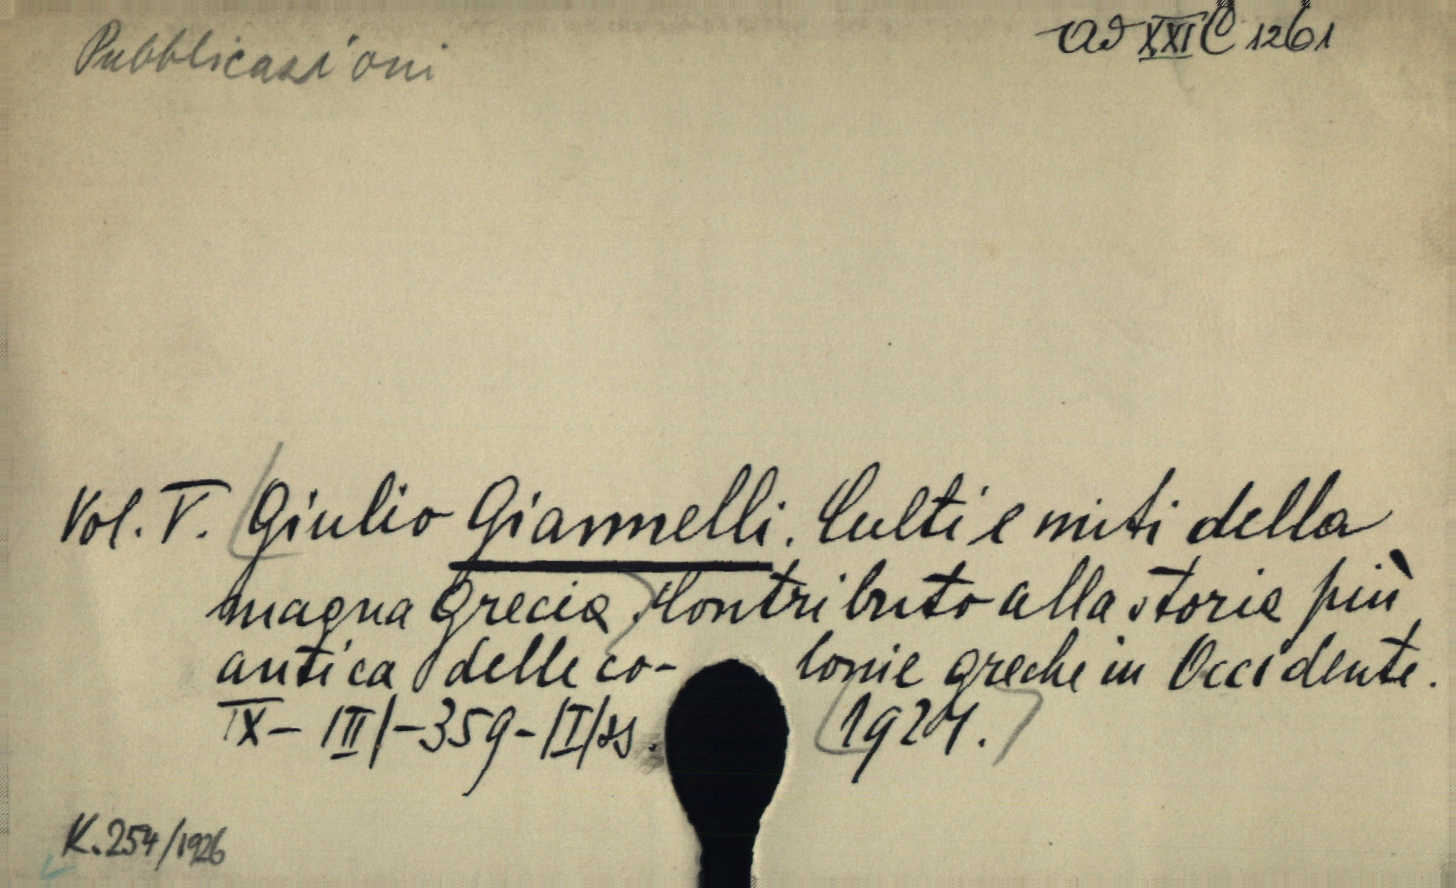 Pubblicazioni
Ad XXI C 1261
Vol. V. Giulio Giannelli. Culti e miti della
magna Grecia. Contributo alla storia più
antica delle co- lonie greche in Occidente.
IX-/III/-359-/I/ss. 1924.
K.254/1926